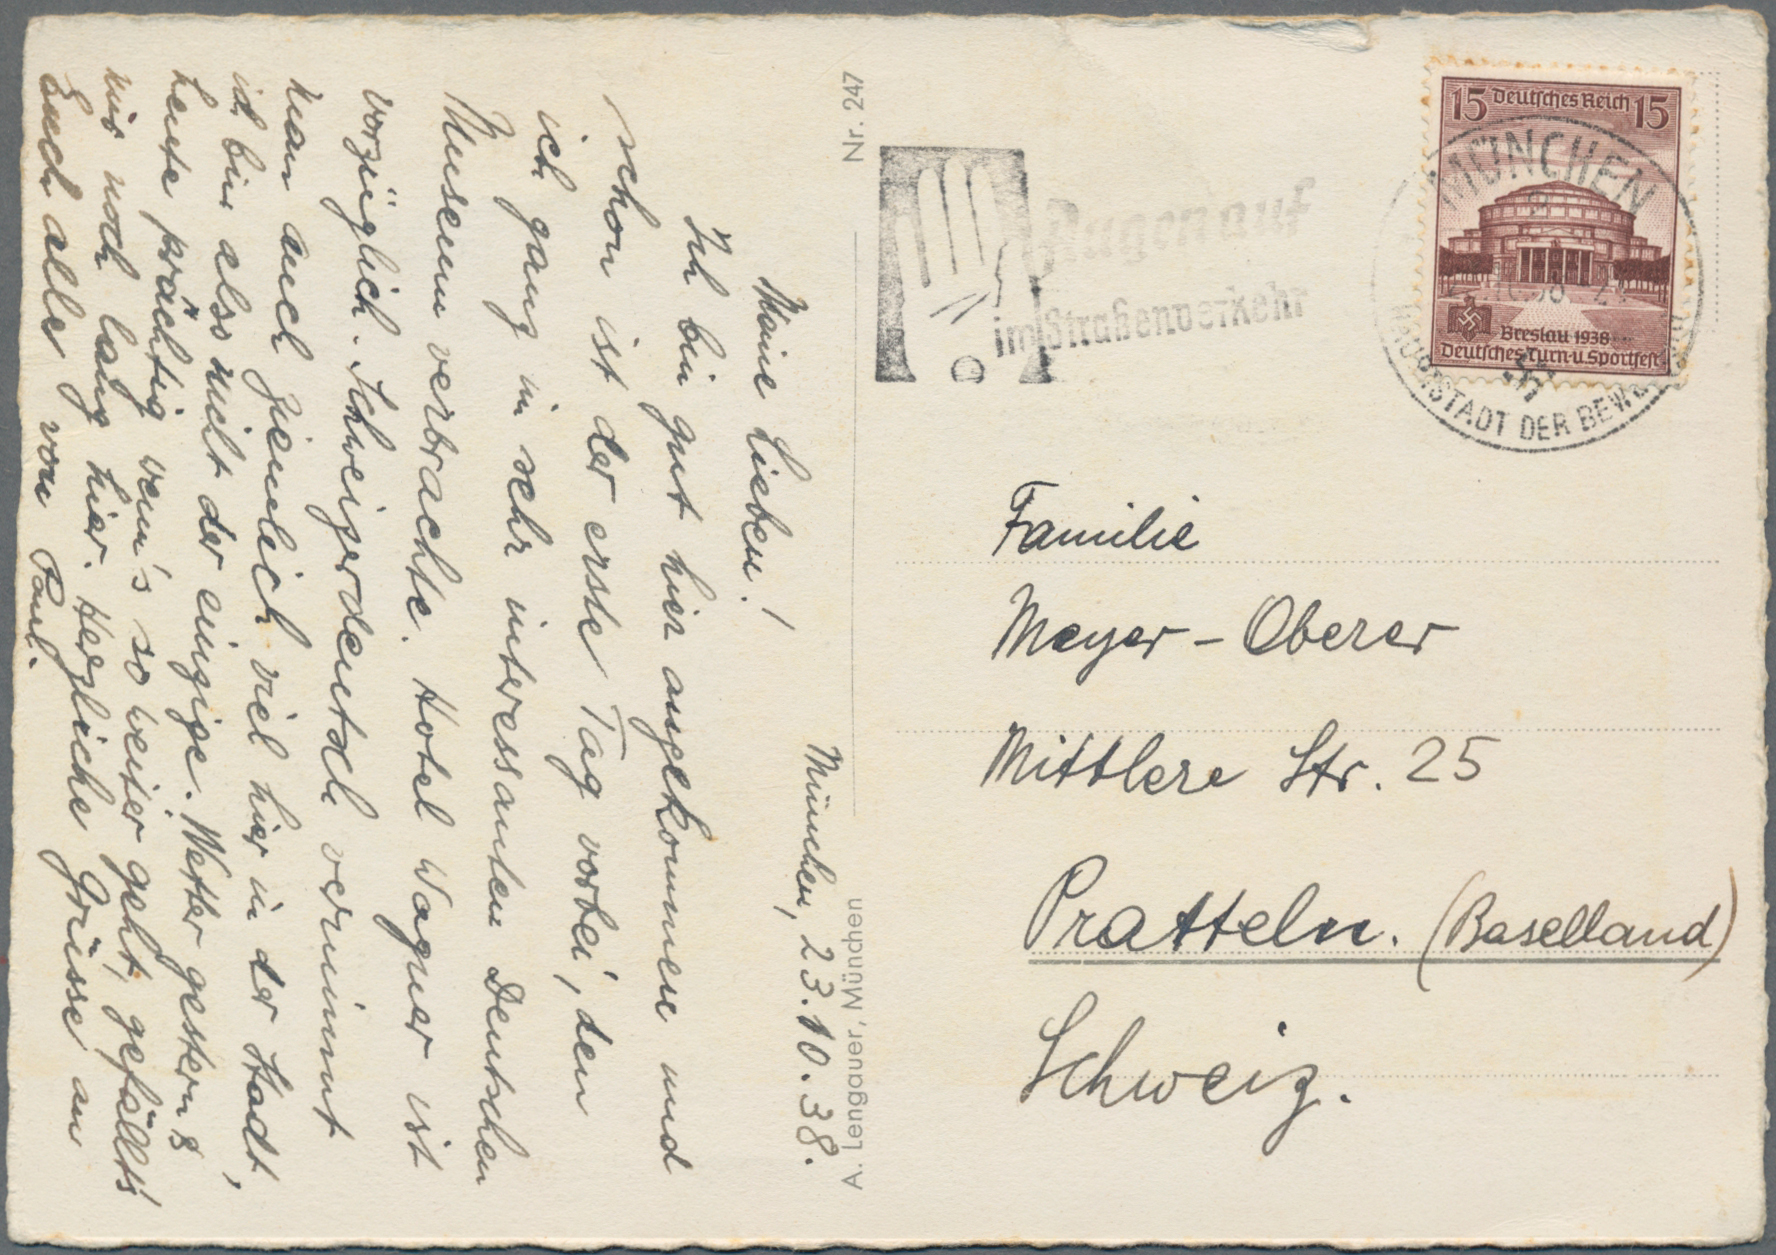 München, 23.10.38.
Meine Lieben!
Ich bin gut hier angekommen und
schon ist der erste Tag vorbei, den
ich ganz im sehr interessanten Deutschen
Museum verbrachte. Hotel Wagner ist
vorzüglich. Schweizerdeutsch vernimmt
man auch ziemlich viel hier in der Stadt,
ich bin also nicht der einzige. Wetter gestern &
heute prächtig wenn's so weiter geht, gefällt's
mir noch lang hier. Herzliche Grüsse an
Euch alle von Paul.
Nr. 247
A. Lengauer, München
Augen auf
im Straßenverkehr
15 Deutsches Reich 15
Breslau 1938
Deutsches Turn-u. Sportfest
MÜNCHEN
HAUPTSTADT DER BEWEGUNG
Familie
Meyer-Oberer
Mittlere Str. 25
Pratteln. (Baselland)
Schweiz.